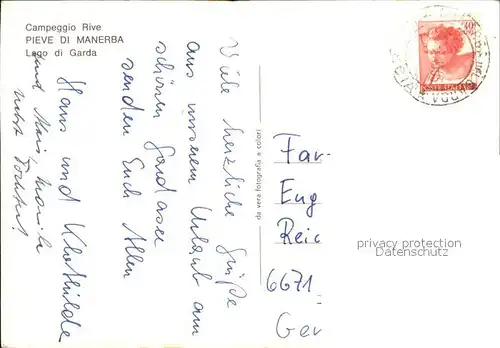 Campeggio Rive
PIEVE DI MANERBA
Lago di Garda
Viele herzliche Grüße
aus unserem Urlaub am
schönen Gardasee
senden Euch Allen
Hans und Klothilde
und
nebst Tochter!
da vera fotografia a colori
40
POSTE ITALIANE
Far-
Eug
Reic
6671
Ger
privacy protection
Datenschutz